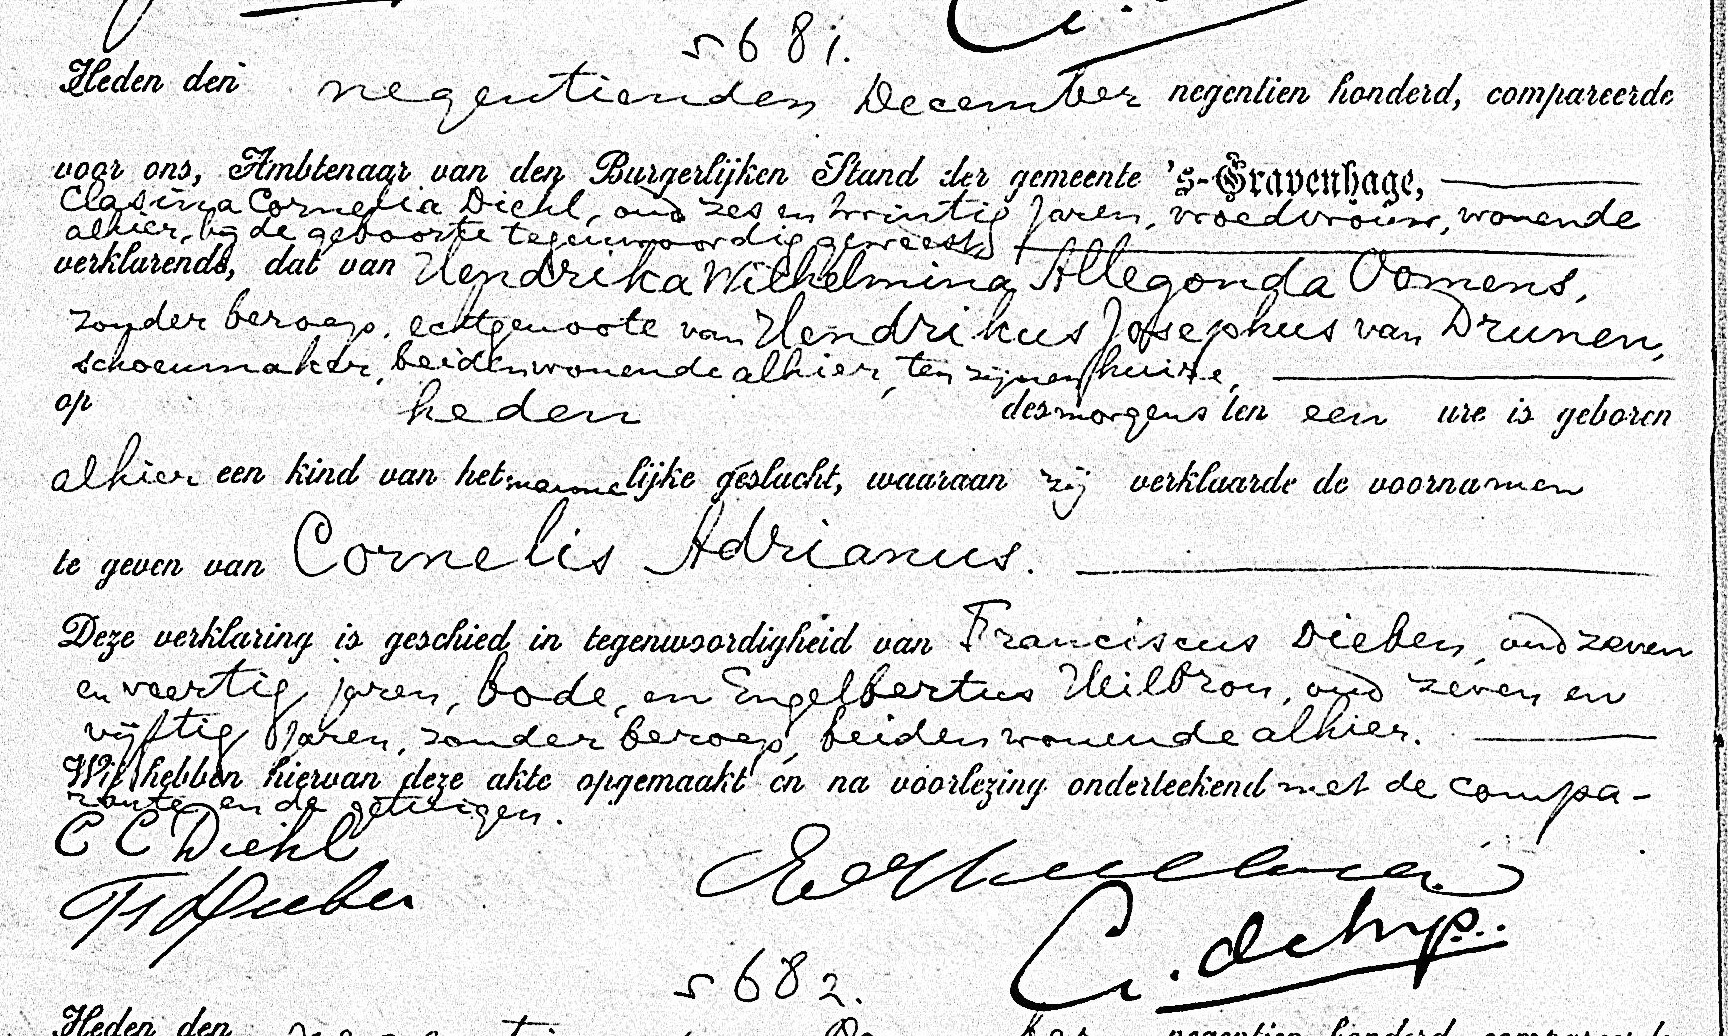 5681.
Heden den negentienden December negentien honderd, compareerde
voor ons, Ambtenaar van den Burgerlijken Stand der gemeente 's-Gravenhage,
Clasina Cornelia Diehl, oud zes en twintig jaren, vroedvrouw, wonende
alhier, bij de geboorte tegenwoordig geweest,
verklarende, dat van Hendrika Wilhelmina Allegonda Oomens,
zonder beroep, echtgenoote van Hendrikus Josephus van Drunen,
schoenmaker, beiden wonende alhier, ten zijnen huize,
op heden des morgens ten een ure is geboren
alhier een kind van het mannelijke geslacht, waaraan zij verklaarde de voornamen
te geven van Cornelis Adrianus.
Deze verklaring is geschied in tegenwoordigheid van Franciscus Dieben, oud zeven
en veertig jaren, bode, en Engelbertus Heilbron, oud zeven en
vijftig jaren, zonder beroep, beiden wonende alhier.
Wij hebben hiervan deze akte opgemaakt en na voorlezing onderteekend met de compa-
rante en de getuigen.
C C Diehl
Fs Dieben
5682.
Heden den negentien honderd, compareerde